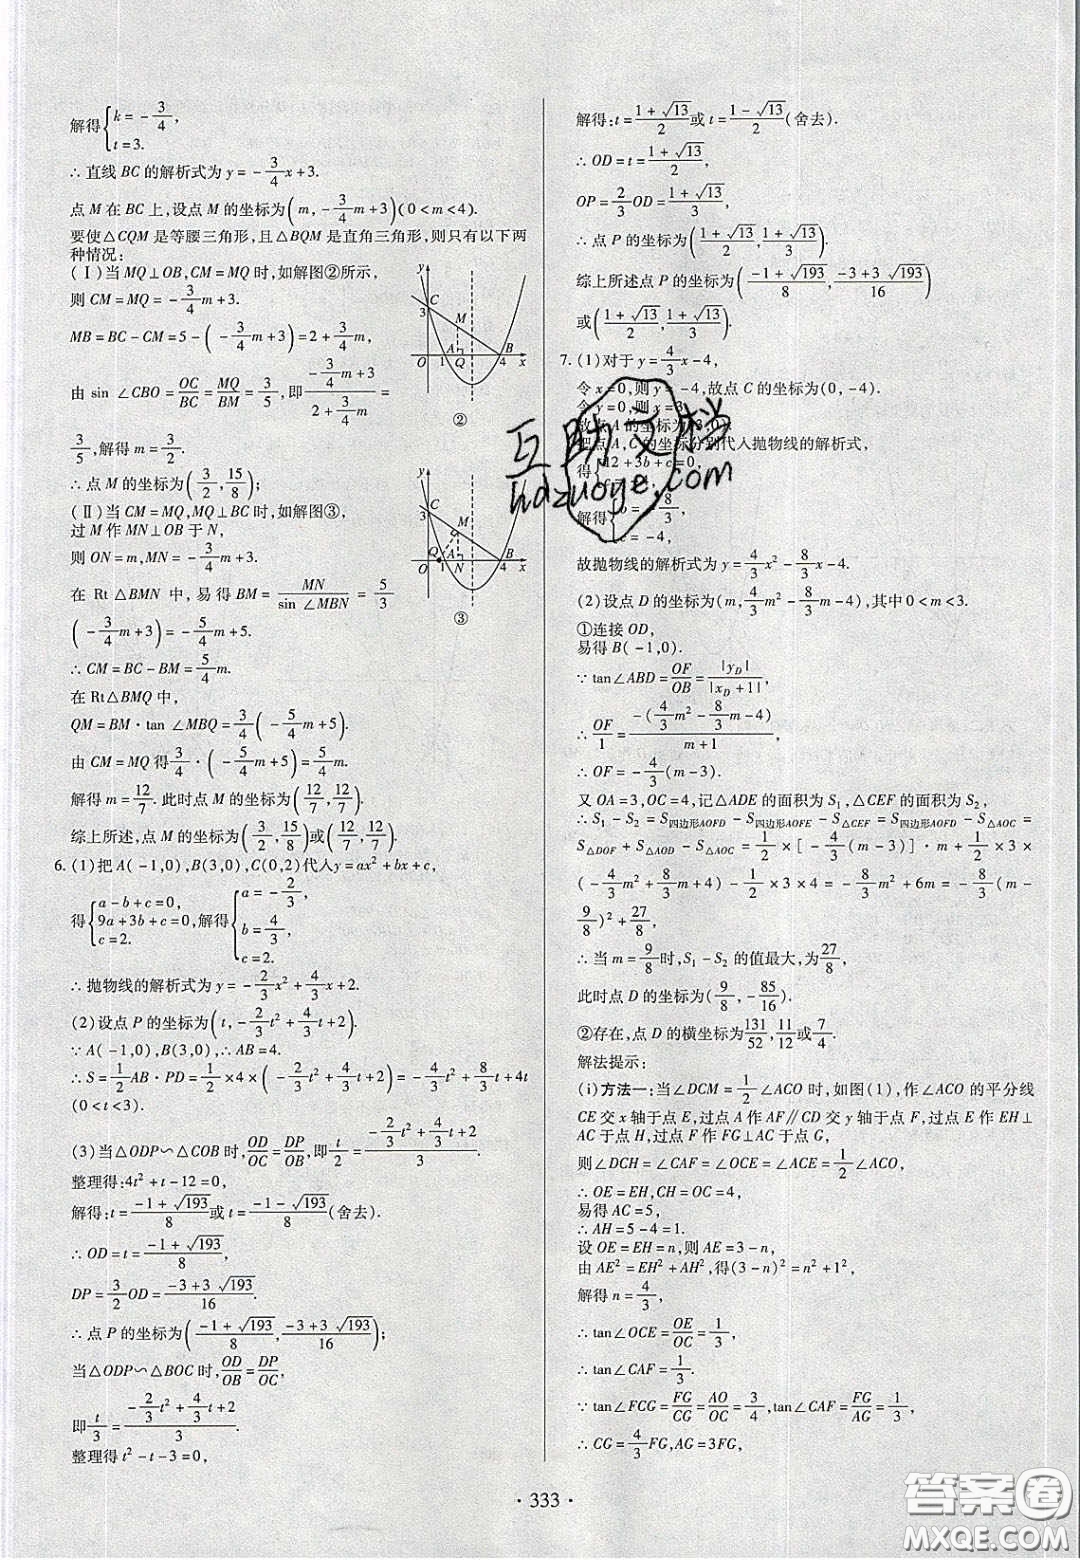 解得{k=-3/4,
t=3.
∴直线BC的解析式为y=-3/4x+3.
点M在BC上,设点M的坐标为(m,-3/4m+3)(0<m<4).
要使△CQM是等腰三角形,且△BQM是直角三角形,则只有以下两
种情况:
(Ⅰ)当MQ⊥OB,CM=MQ时,如解图②所示,
则CM=MQ=-3/4m+3.
MB=BC-CM=5-(-3/4m+3)=2+3/4m.
由sin ∠CBO=OC/BC=MQ/BM=3/5,即(-3/4m+3)/(2+3/4m)=
3/5,解得m=3/2.
∴点M的坐标为(3/2,15/8);
(Ⅱ)当CM=MQ,MQ⊥BC时,如解图③,
过M作MN⊥OB于N,
则ON=m,MN=-3/4m+3.
在Rt△BMN中,易得BM=MN/sin ∠MBN=5/3
(-3/4m+3)=-5/4m+5.
∴CM=BC-BM=5/4m.
在Rt△BMQ中,
QM=BM·tan ∠MBQ=3/4(-5/4m+5).
由CM=MQ得3/4·(-5/4m+5)=5/4m.
解得m=12/7. 此时点M的坐标为(12/7,12/7).
综上所述,点M的坐标为(3/2,15/8)或(12/7,12/7).
y
C
3
M
O 1 A Q 4 B x
②
y
C
3
M
Q
O 1 A N 4 B x
③
6. (1)把A(-1,0),B(3,0),C(0,2)代入y=ax²+bx+c,
得{a-b+c=0,
9a+3b+c=0,
c=2.
解得{a=-2/3,
b=4/3,
c=2.
∴抛物线的解析式为y=-2/3x²+4/3x+2.
(2)设点P的坐标为(t,-2/3t²+4/3t+2).
∵A(-1,0),B(3,0),∴AB=4.
∴S=1/2AB·PD=1/2×4×(-2/3t²+4/3t+2)=-4/3t²+8/3t+4t
(0<t<3).
(3)当△ODP∽△COB时,OD/OC=DP/OB,即t/2=(-2/3t²+4/3t+2)/3.
整理得:4t²+t-12=0,
解得:t=(-1+√193)/8或t=(-1-√193)/8(舍去).
∴OD=t=(-1+√193)/8,
DP=3/2OD=(-3+3√193)/16.
∴点P的坐标为((-1+√193)/8,(-3+3√193)/16);
当△ODP∽△BOC时,OD/OB=DP/OC,
即t/3=(-2/3t²+4/3t+2)/3.
整理得t²-t-3=0,
解得:t=(1+√13)/2或t=(1-√13)/2(舍去).
∴OD=t=(1+√13)/2,
OP=2/3OD=(1+√13)/3,
∴点P的坐标为((1+√13)/2,(1+√13)/3).
综上所述点P的坐标为((-1+√193)/8,(-3+3√193)/16)
或((1+√13)/2,(1+√13)/3).
7. (1)对于y=4/3x-4,
令x=0,则y=-4,故点C的坐标为(0,-4).
令y=0,则x=3,
故点A的坐标为(3,0).
把点A,C的坐标分别代入抛物线的解析式,
得{12+3b+c=0,
解得{b=-8/3,
c=-4,
故抛物线的解析式为y=4/3x²-8/3x-4.
(2)设点D的坐标为(m,4/3m²-8/3m-4),其中0<m<3.
①连接OD,
易得B(-1,0).
∵tan∠ABD=OF/OB=|y_D|/|x_D+1|,
∴OF/1=-(4/3m²-8/3m-4)/(m+1),
∴OF=-4/3(m-3).
又OA=3,OC=4,记△ADE的面积为S₁,△CEF的面积为S₂,
∴S₁-S₂=S四边形AOFD-S四边形AOFE-S△CEF=S四边形AOFD-S△AOC=
S△DOF+S△AOD-S△AOC=1/2×[-4/3(m-3)]·m+1/2×3×
(-4/3m²+8/3m+4)-1/2×3×4=-8/3m²+6m=-8/3(m-
9/8)²+27/8.
∴当m=9/8时,S₁-S₂的值最大,为27/8.
此时点D的坐标为(9/8,-85/16).
②存在,点D的横坐标为131/52,11/12或7/4.
解法提示:
(i)方法一:当∠DCM=1/2∠ACO时,如图(1),作∠ACO的平分线
CE交x轴于点E,过点A作AF∥CD交y轴于点F,过点E作EH⊥
AC于点H,过点F作FG⊥AC于点G,
则∠DCH=∠CAF=∠OCE=∠ACE=1/2∠ACO,
∴OE=EH,CH=OC=4,
易得AC=5,
∴AH=5-4=1.
设OE=EH=n,则AE=3-n,
由AE²=EH²+AH²,得(3-n)²=n²+1²,
解得n=4/3,
∴tan∠OCE=OE/OC=1/3,
∴tan∠CAF=1/3.
∵tan∠FCG=FG/CG=AO/OC=3/4,tan∠CAF=FG/AG=1/3,
∴CG=4/3FG,AG=3FG,
互助文档
hdzuoye.com
· 333 ·
答案圈
MXQE.COM